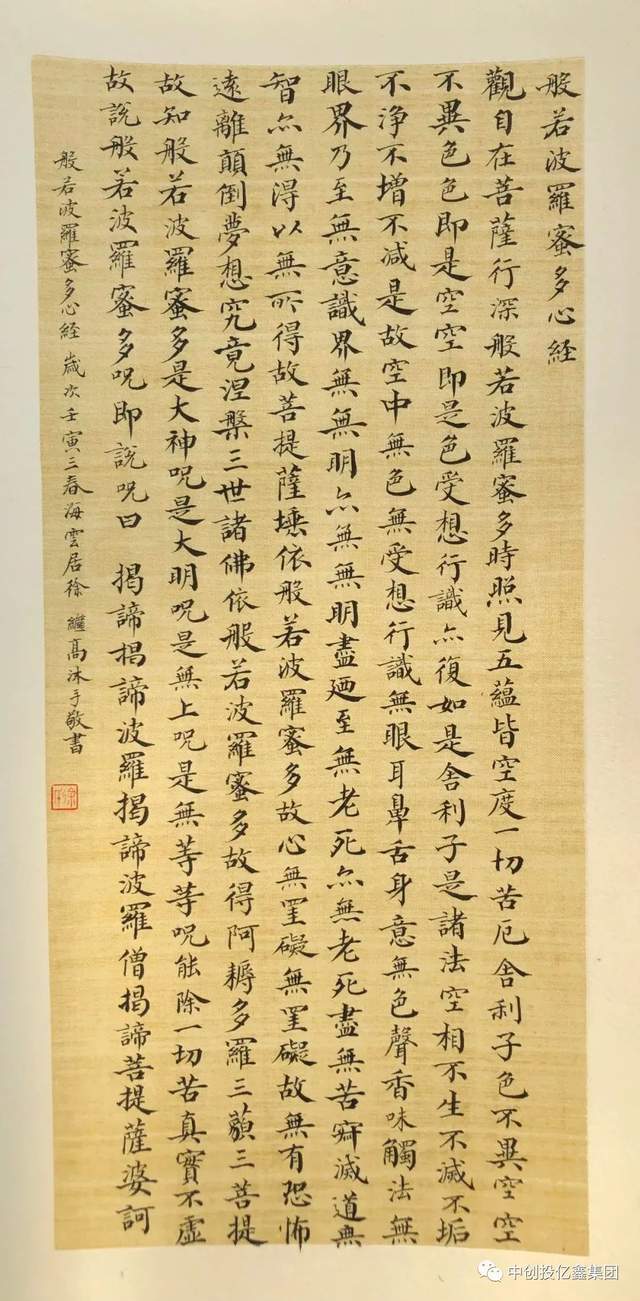 般若波羅蜜多心経
觀自在菩薩行深般若波羅蜜多時照見五蘊皆空度一切苦厄舍利子色不異空空
不異色色即是空空即是色受想行識亦復如是舍利子是諸法空相不生不滅不垢
不浄不增不減是故空中無色無受想行識無眼耳鼻舌身意無色聲香味觸法無
眼界乃至無意識界無無明亦無無明盡廼至無老死亦無老死盡無苦寂滅道無
智亦無得以無所得故菩提薩埵依般若波羅蜜多故心無罣礙無罣礙故無有恐怖
遠離顛倒夢想究竟涅槃三世諸佛依般若波羅蜜多故得阿耨多羅三藐三菩提
故知般若波羅蜜多是大神呪是大明呪是無上呪是無等等呪能除一切苦真實不虛
故說般若波羅蜜多呪即說呪曰 揭諦揭諦波羅揭諦波羅僧揭諦菩提薩婆訶
般若波羅蜜多心経 歲次壬寅三春海雲居徐繼高沐手敬書
中创投亿鑫集团